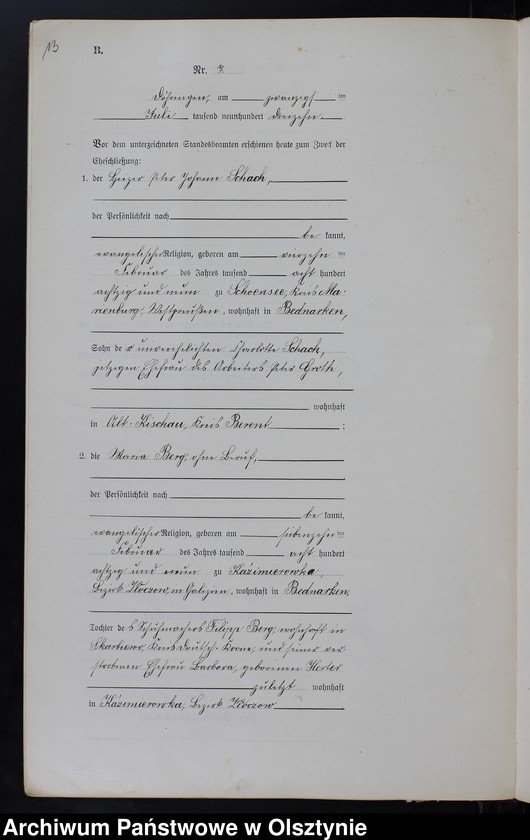 13
B.
Nr. 7
Döhringen, am zwanzigsten
Juli tausend neunhundert dreizehn
Vor dem unterzeichneten Standesbeamten erschienen heute zum Zweck der
Eheschließung:
1. der Heizer Peter Johann Schach,
der Persönlichkeit nach
be kannt,
evangelischer Religion, geboren am vierzehn ten
Februar des Jahres tausend acht hundert
achtzig und neun zu Schoensee, Kreis Ma-
rienburg, Westpreußen, wohnhaft in Bednarken,
Sohn der unverehelichten Charlotte Schach,
jetzigen Ehefrau des Arbeiters Peter Groth,
wohnhaft
in Alt-Kischau, Kreis Berent ;
2. die Maria Berg, ohne Beruf,
der Persönlichkeit nach
be kannt,
evangelischer Religion, geboren am siebenzehn ten
Februar des Jahres tausend acht hundert
achtzig und neun zu Kazimierowka,
Bezirk Zloczow in Galizien, wohnhaft in Bednarken,
Tochter des Schuhmachers Filipp Berg, wohnhaft in
Kreis Deutsch-Krone, und seiner ver-
storbenen Ehefrau Barbara, geborenen Herter
zuletzt wohnhaft
in Kazimierowka, Bezirk Zloczow
Archiwum Państwowe w Olsztynie